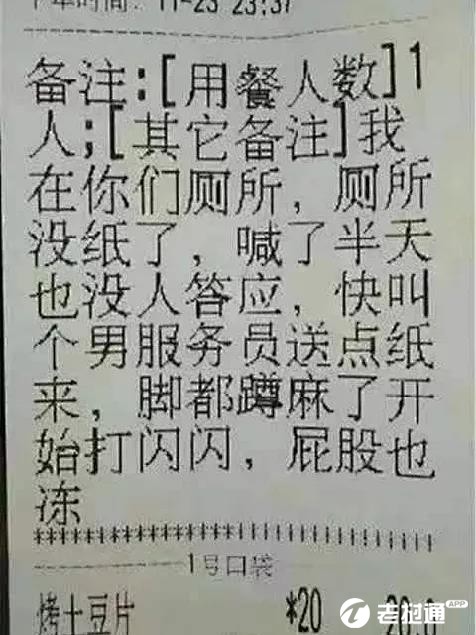 下单时间: 11-23 23:37
备注:[用餐人数]1
人;[其它备注]我
在你们厕所，厕所
没纸了，喊了半天
也没人答应，快叫
个男服务员送点纸
来，脚都蹲麻了开
始打闪闪，屁股也
冻
********************************
1号口袋
烤土豆片 *20
老挝通 APP